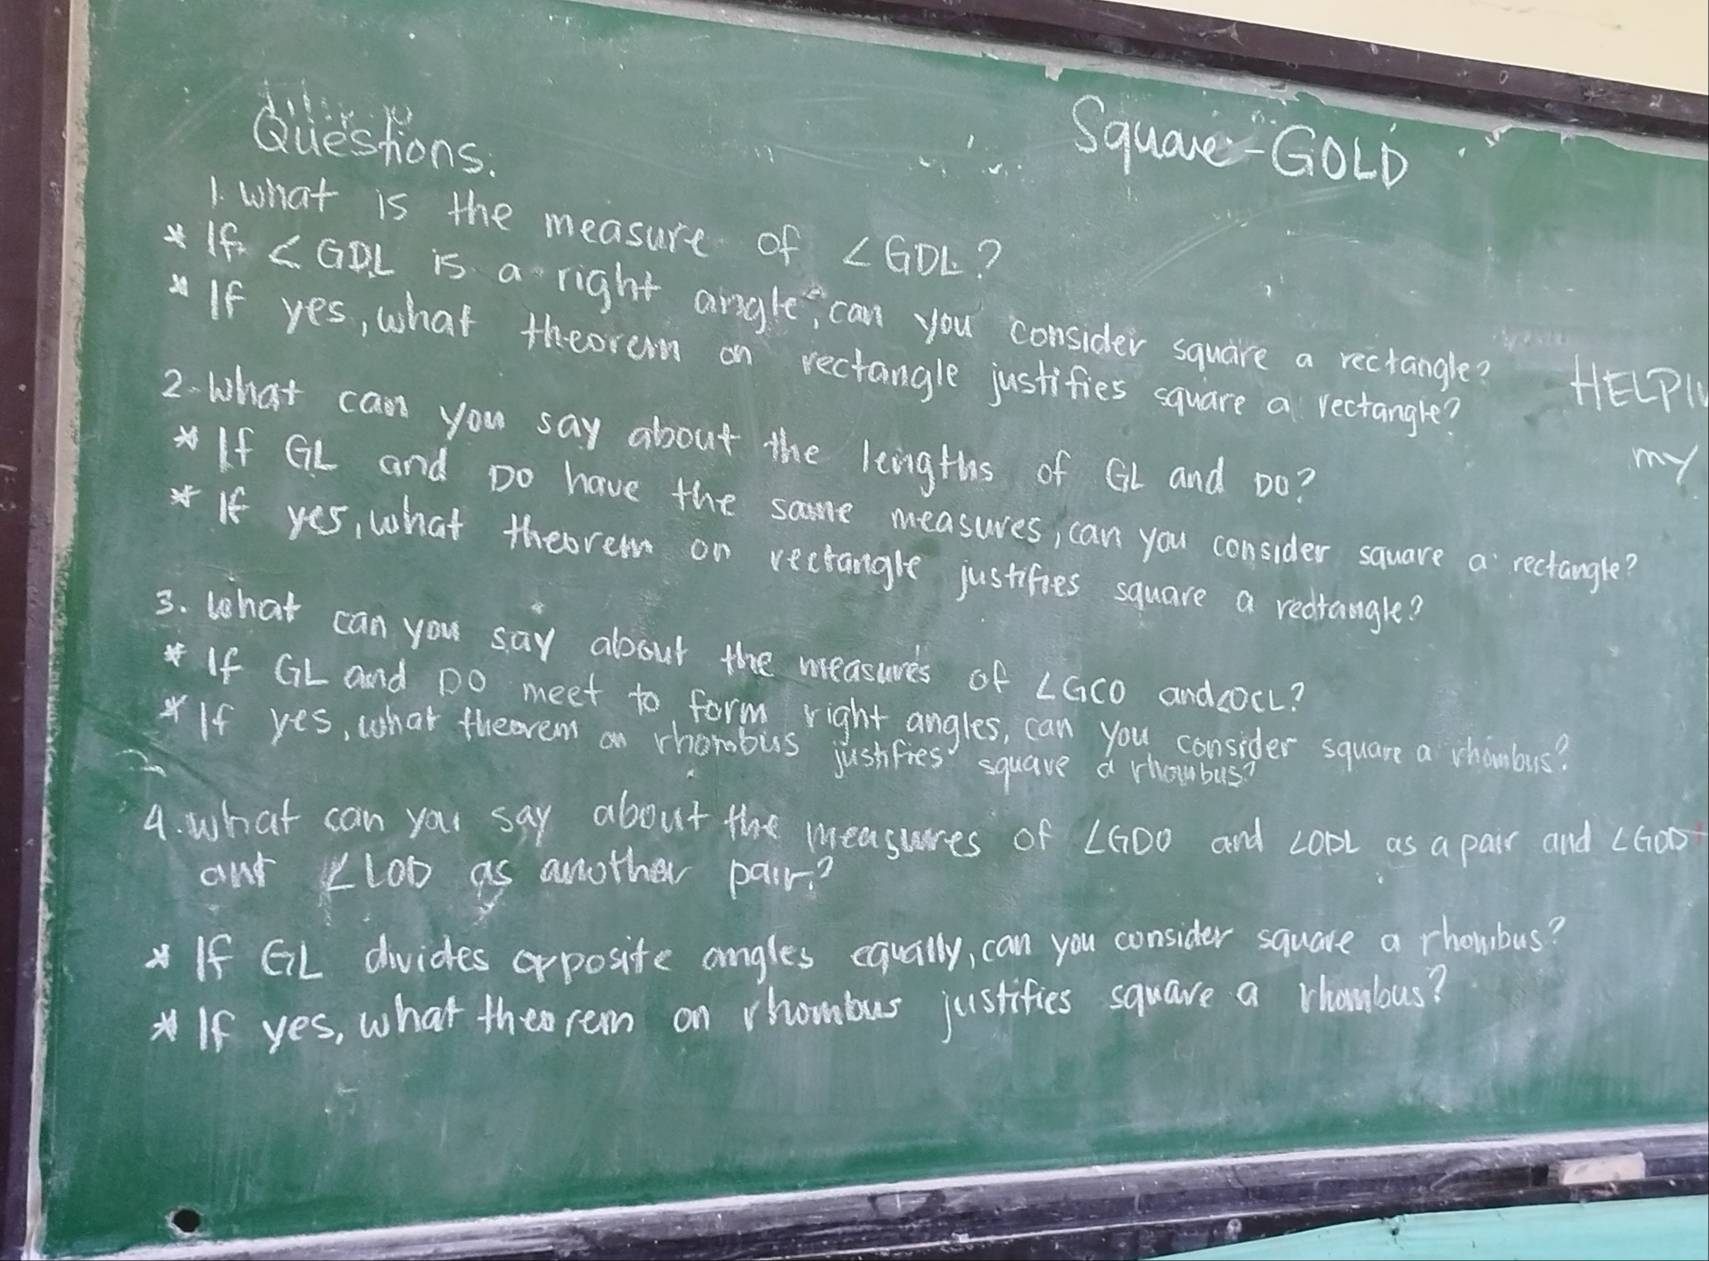 Square-GOLD
Questions.
1. What is the measure of ∠GDL?
* If ∠GDL is a right angle, can you consider square a rectangle?
* If yes, what theorem on rectangle justifies square a rectangle?
2. What can you say about the lengths of GL and DO?
* If GL and DO have the same measures, can you consider square a rectangle?
* If yes, what theorem on rectangle justifies square a rectangle?
3. What can you say about the measures of ∠GCO and ∠OCL?
* If GL and DO meet to form right angles, can you consider square a rhombus?
* If yes, what theorem on rhombus justifies square a rhombus?
4. What can you say about the measures of ∠GDO and ∠ODL as a pair and ∠GOD
and ∠LOD as another pair?
* If GL divides opposite angles equally, can you consider square a rhombus?
* If yes, what theorem on rhombus justifies square a rhombus?
my